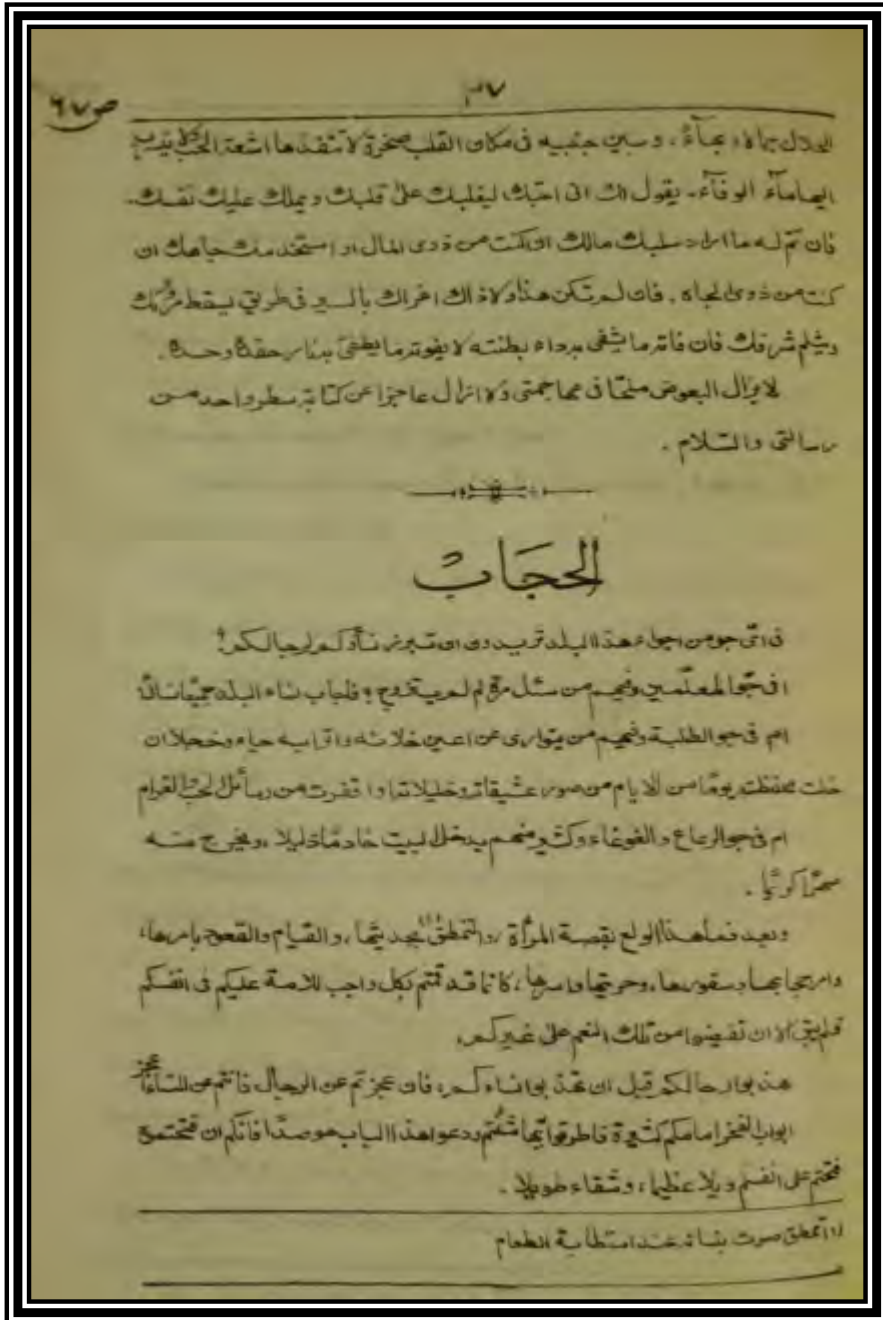 ٣٧
ص ٦٧
الجلال جمالا وبهآءً، وبين جنبيه في مكان القلب صخرة لا تنفذها اشعة الحب ولا يتسرب
اليها مآء الوفآء. يقول لك انى احبك ليغلبك على قلبك ويملك عليك نفسك.
فان تم له ما اراد سلبك مالك ان كنت من ذوى المال او استخدمك جاهك ان
كنت من ذوى الجاه. فان لم تكن هذا ولا ذاك اغراك بالسير فى طريق يسقط مرؤتك
ويثلم شرفك فان فاته ما يشفى به داء بطنته لا يفوته ما يطفئ به نار حقده وحسده.
لا يزال البعوض ملحّا فى مهاجمتى ولا ازال عاجزا عن كتابة سطر واحد من
رسالتى والسّلام.
الحجَابْ
فى اىّ جو من اجواء هذا البلد تريدون ان تبرز نسآؤكم لرجالكم؟
افى جوّ المعلّمين وفيهم من سئل مرة لم لم يتزوج؟ فاجاب نساء البلد جميعًا نسائى
ام فى جو الطلبة وفيهم من يتوارى عن اعين خلانه واترابه حياء وخجلا ان
خلت محفظته يومًا من الايام من صور عشيقاته وخليلاته او اقفرت من رسائل الحب والغرام
ام فى جو الرعاع والغوغاء وكثير منهم يدخل البيت خادمًا ذليلا، ويخرج منه
صهرًا كريمًا.
وبعد فما هذا الولع بقصة المرأة، والتمطق (١) بحديثها، والقيام والقعود بامرها،
وامر حجابها وسفورها، وحريتها واسرها، كانما قد قمتم بكل واجب للامة عليكم فى انفسكم
فلم يبق الا ان تفيضوا من تلك النعم على غيركم.
هذبوا رجالكم قبل ان تهذبوا نساءكم، فان عجزتم عن الرجال، فانتم عن النساء اعجز
ابواب الفخر امامكم كثيرة فاطرقوا ايها شئتم ودعوا هذا الباب موصدًا فانكم ان فتحتموه
فتحتم على انفسكم ويلا عظيما، وشقاء طويلا.
(١) تمطق صوت بلسانه عند استطابة الطعام